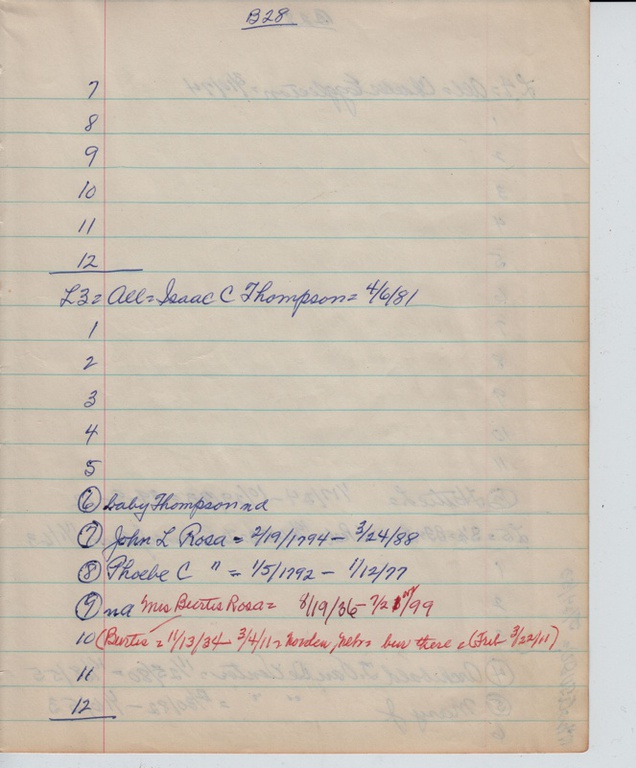 B28
7
8
9
10
11
12
L3 = All = Isaac C Thompson = 4/6/81
1
2
3
4
5
6 baby Thompson nd
7 John L Rosa = 2/19/1794 - 3/24/88
8 Phoebe C " = 1/5/1792 - 1/12/77
9 na Mrs Burtis Rosa = 8/19/36 - 7/2 /99
10 (Burtis = 11/13/34 - 3/4/11 = Norden, Nebr = bur there = ( 3/22/11)
11
12